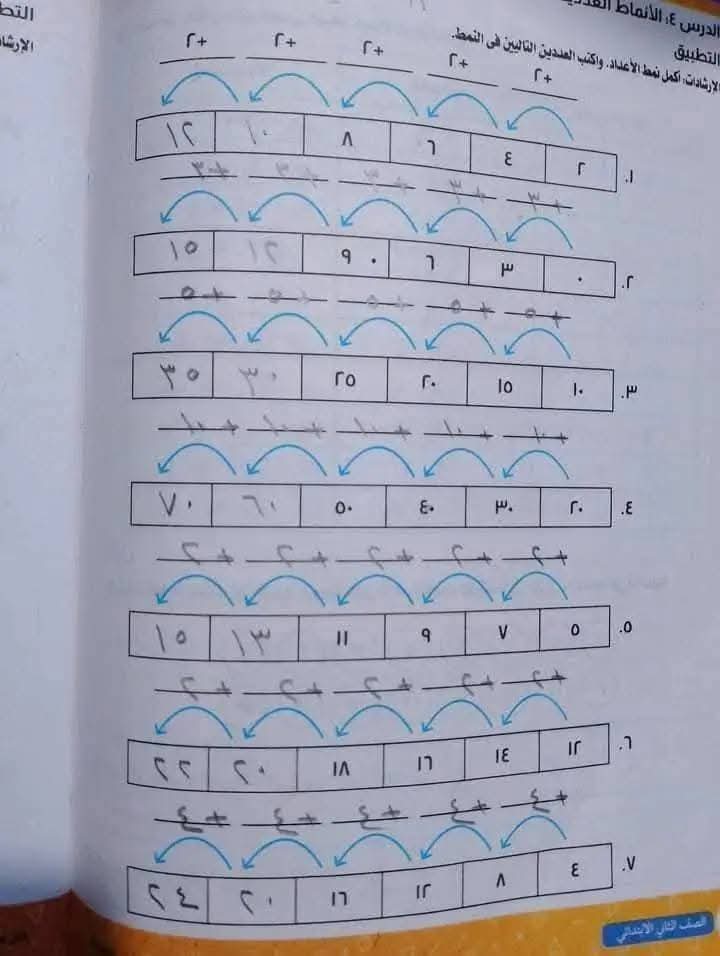 الدرس ٤: الأنماط العددية
التطبيق
الإرشادات: أكمل نمط الأعداد. واكتب العددين التاليين فى النمط.
+٢ +٢ +٢ +٢ +٢
١. ٢ ٤ ٦ ٨ ١٠ ١٢
+٣ +٣ +٣ +٣ +٣
٢. ٠ ٣ ٦ ٩ ١٢ ١٥
+٥ +٥ +٥ +٥ +٥
٣. ١٠ ١٥ ٢٠ ٢٥ ٣٠ ٣٥
+١٠ +١٠ +١٠ +١٠ +١٠
٤. ٢٠ ٣٠ ٤٠ ٥٠ ٦٠ ٧٠
+٢ +٢ +٢ +٢ +٢
٥. ٥ ٧ ٩ ١١ ١٣ ١٥
+٢ +٢ +٢ +٢ +٢
٦. ١٢ ١٤ ١٦ ١٨ ٢٠ ٢٢
+٤ +٤ +٤ +٤ +٤
٧. ٤ ٨ ١٢ ١٦ ٢٠ ٢٤
الصف الثاني الابتدائي